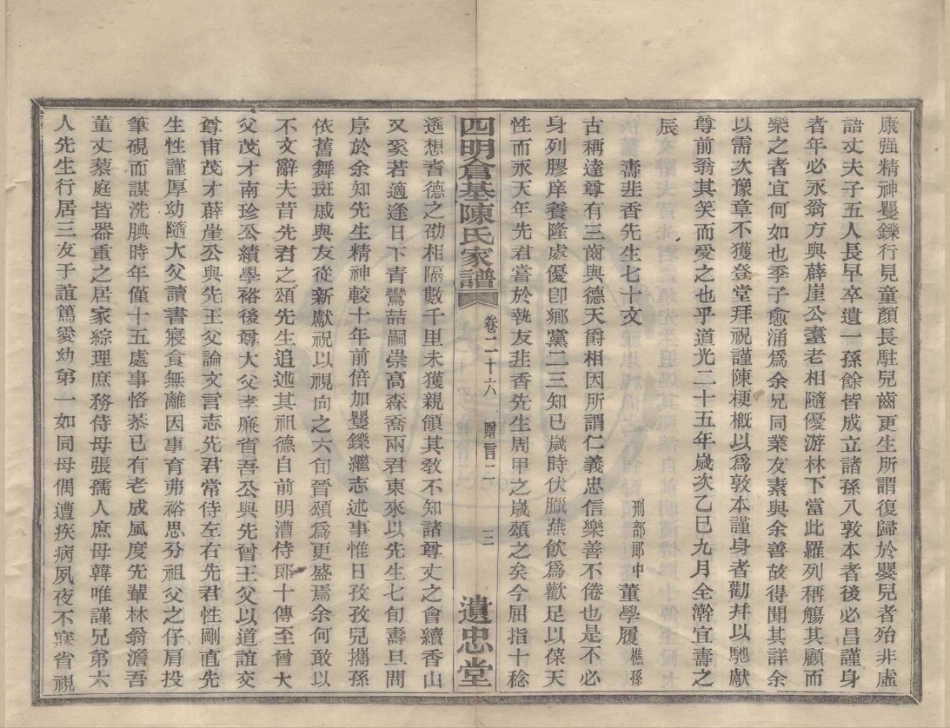 康强精神矍鑠行見童顏長駐兒齒更生所謂復歸於嬰兒者殆非虛
語丈夫子五人長早卒遺一孫餘皆成立諸孫八敦本者後必昌謹身
者年必永翁方與薜崖公耋老相隨優游林下當此羅列稱觴其顧而
樂之者宜何如也季子愈涌爲余兄同業友素與余善故得聞其詳余
以需次豫章不獲登堂拜祝謹陳梗槪以爲敦本謹身者勸幷以馳獻
尊前翁其笑而受之也乎道光二十五年歲次乙巳九月全澣宜壽之
辰
壽韭香先生七十文
刑部郞中董學履樵孫
古稱達尊有三齒與德天爵相因所謂仁義忠信樂善不倦也是不必
身列膠庠養隆處優卽鄉黨二三知已歲時伏臘燕飮爲歡足以葆天
性而永天年先君嘗於執友韭香先生周甲之歲頌之矣今屈指十稔
四明倉基陳氏家譜
卷二十六
贈言二
三
遺忠堂
遥想耆德之劭相隔數千里未獲親領其敎不知諸尊丈之會續香山
又奚若適逢日下靑鸞喆嗣崇高森喬兩君東來以先生七旬壽旦問
序於余知先生精神較十年前倍加矍鑠繼志述事惟日孜孜兒攜孫
依舊舞斑戚與友從新獻祝以視向之六旬晉頌爲更盛焉余何敢以
不文辭夫昔先君之頌先生追述其祖德自前明漕侍郞十傳至曾大
父茂才南珍公績學裕後尊大父孝廉省吾公與先曾王父以道誼交
尊甫茂才薜崖公與先王父論文言志先君常侍左右先君性剛直先
生性謹厚幼隨大父讀書寢食無離因事育弗裕思分祖父之仔肩投
筆硯而謀洗腆時年僅十五處事恪恭已有老成風度先輩林翁澹吾
董丈藜庭皆器重之居家綜理庶務侍母張孺人庶母韓唯謹兄第六
人先生行居三友于誼篤愛幼第一如同母偶遭疾病夙夜不寐省視